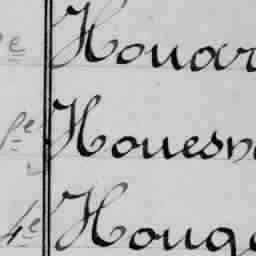 e Houar
e Houesn
4e Houg